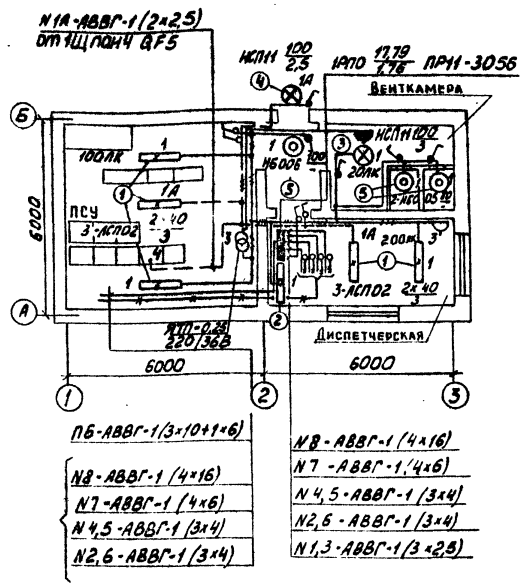 N1А-АВВГ-1(2×2,5)
от 1ЩПОНЧ QF5
НСП11 100/2,5
1А
4
1РПО 17,79/1,76 ПР11-3056
ВЕНТКАМЕРА
Б
100ЛК
1
1
1А
2×40
3
ПСУ
3-ЛСП02
4
1
3
1
НБ006
100
5
3
НСП11 100
3
1
20ЛК
5
2-НБ0
05
6000
1А
200ЛК
1
1
3-ЛСП02
2×40/3
1
2
А
ЯТП-0,25
220/36В
ДИСПЕТЧЕРСКАЯ
6000
6000
1
2
3
П6-АВВГ-1(3×10+1×6)
N8-АВВГ-1 (4×16)
N7-АВВГ-1 (4×6)
N4,5-АВВГ-1 (3×4)
N2,6-АВВГ-1 (3×4)
N8-АВВГ-1 (4×16)
N7-АВВГ-1 (4×6)
N4,5-АВВГ-1 (3×4)
N2,6-АВВГ-1 (3×4)
N1,3-АВВГ-1 (3×2,5)